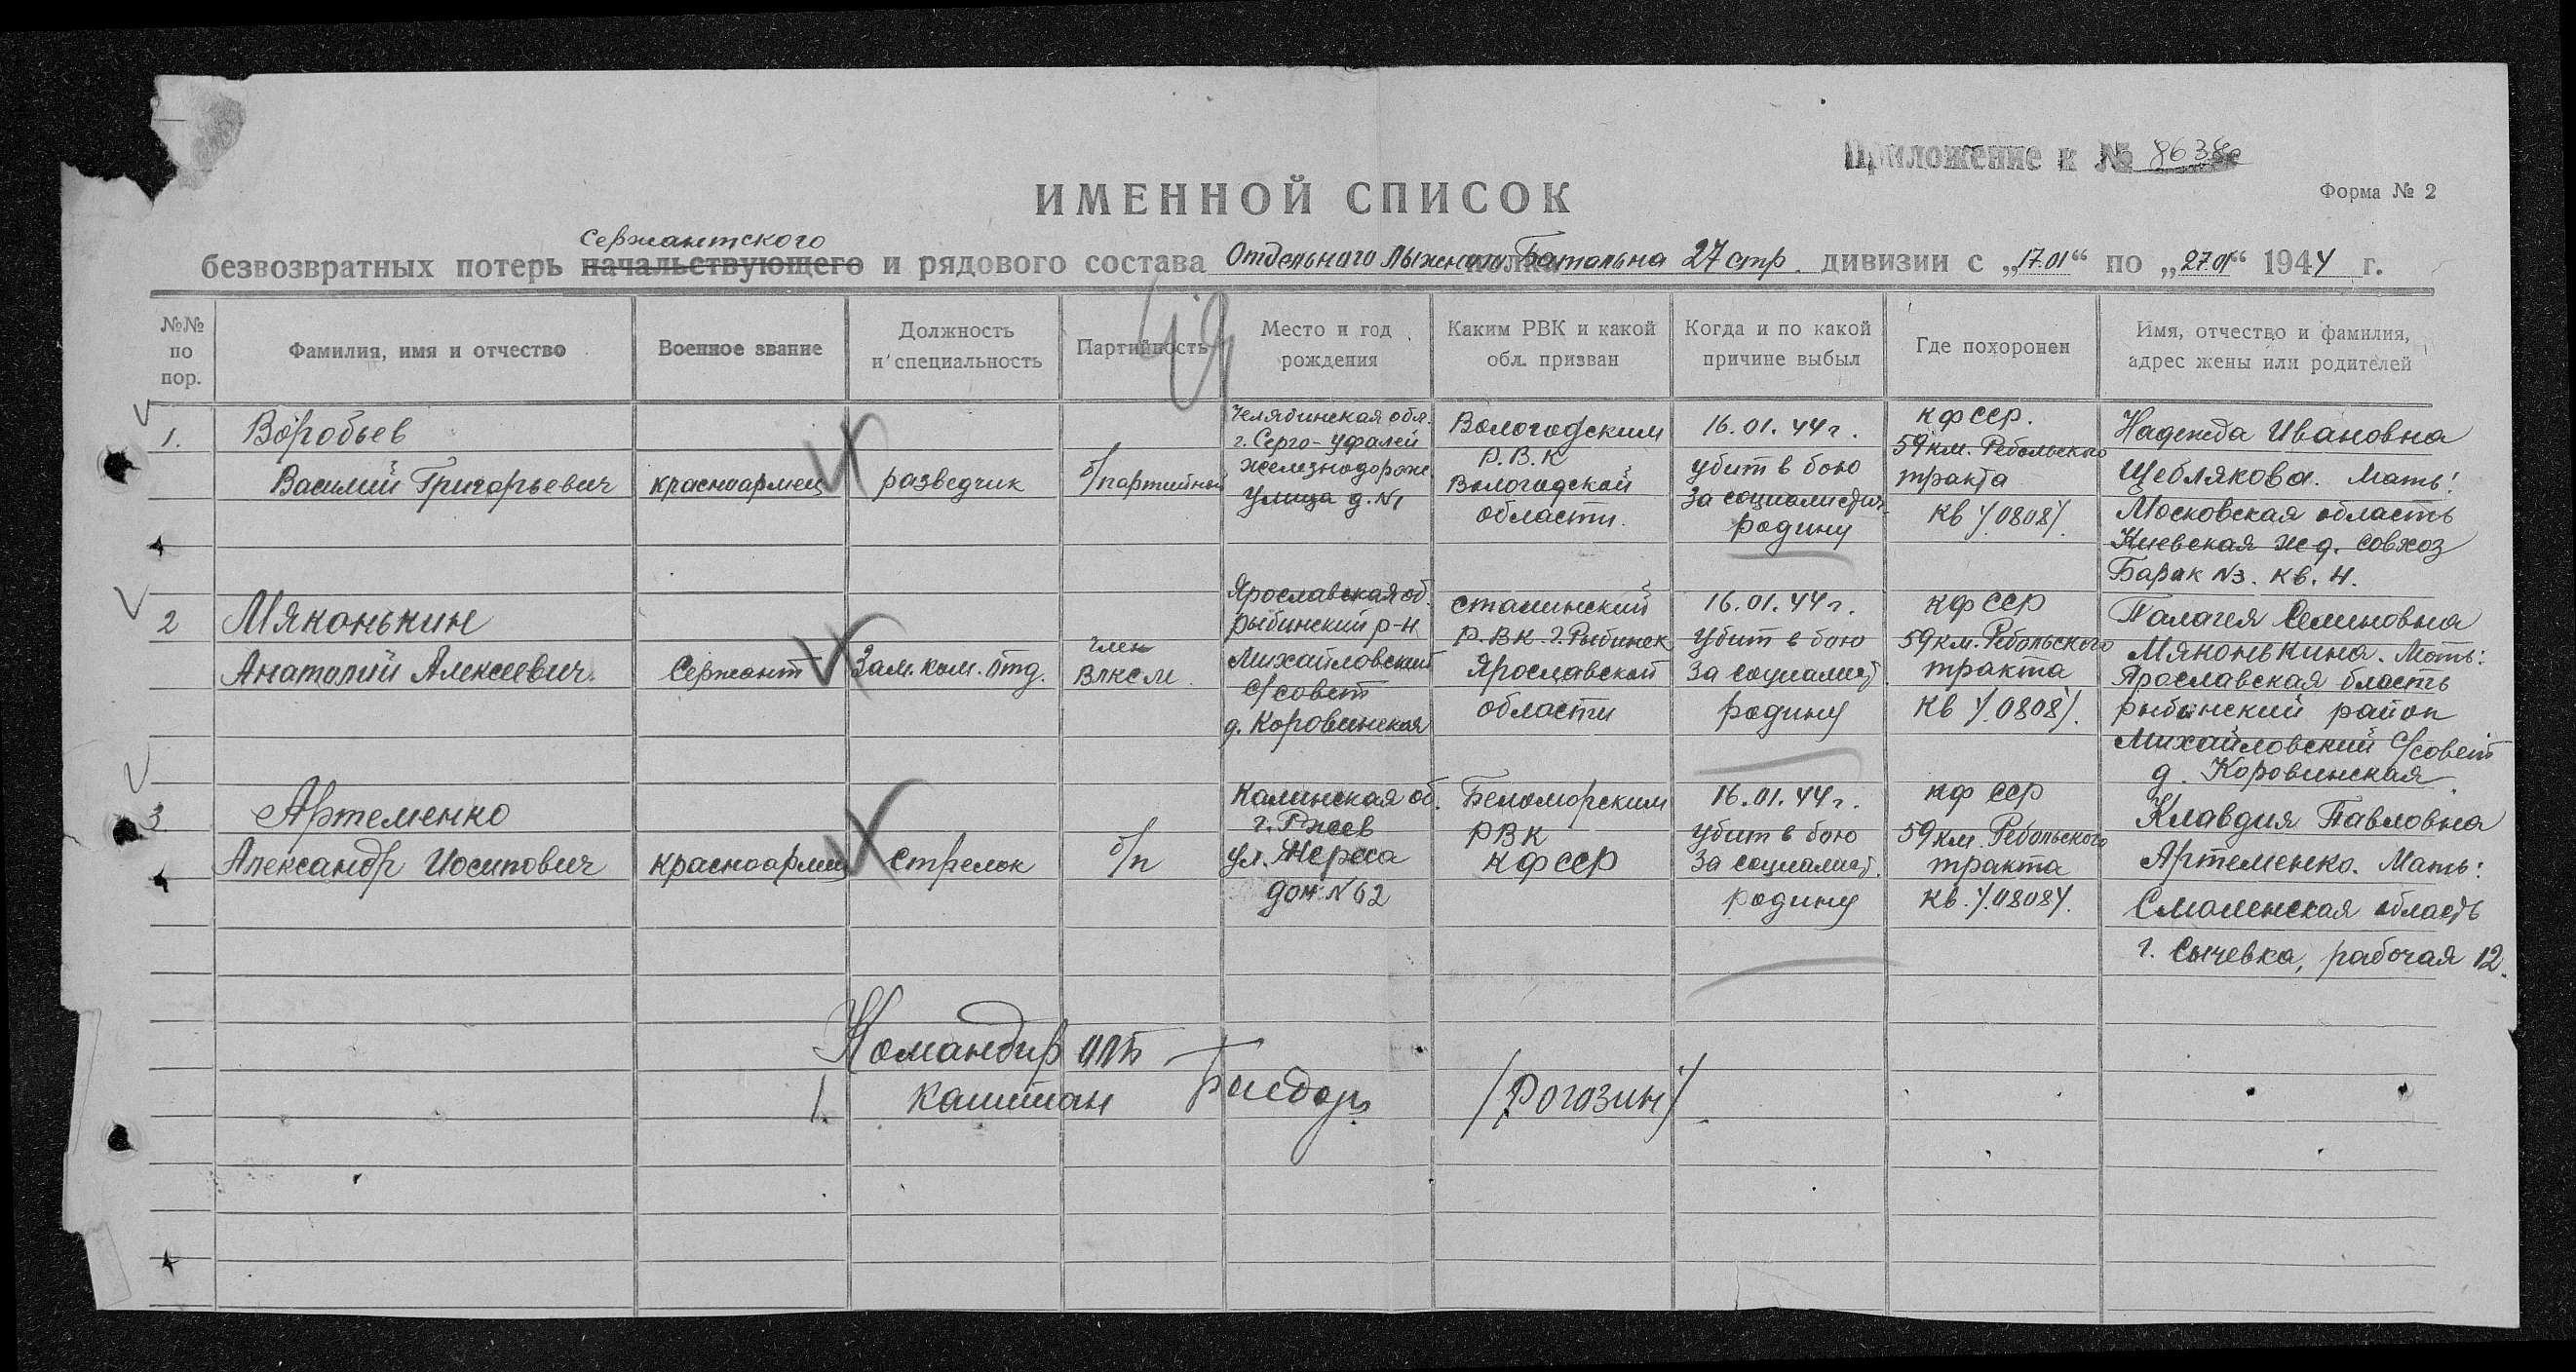 Приложение к №
Форма № 2
ИМЕННОЙ СПИСОК
Сержантского
безвозвратных потерь начальствующего и рядового состава Отдельного Лыжного Батальна 27 стр. дивизии с „17.01“ по „27.01“ 1944 г.
№№ по пор.
Фамилия, имя и отчество
Военное звание
Должность и специальность
Партийность
Место и год рождения
Каким РВК и какой обл. призван
Когда и по какой причине выбыл
Где похоронен
Имя, отчество и фамилия, адрес жены или родителей
1.
Воробьев
Василий Григорьевич
красноармеец
разведчик
б/партийный
Челябинская обл.
г. Серго-Уфалей
железнодорож
улица д. №1
Вологодским
Р.В.К
Вологодской
области.
16.01.44г.
убит в бою
За социалистич.
родину
кфсср.
59 км. Ребольского
тракта
кв /.0808/.
Надежда Ивановна
Щеблякова. Мать:
Московская область
Киевская ж д. совхоз
Барак №3. кв. 4.
2
Мяконькин
Анатолий Алексеевич.
Сержант
Зам. ком. отд.
член
ВЛКСМ.
Ярославская об.
рыбинский р-н
Михайловский
с/совет
д. Коровинская
сталинский
Р.ВК. г. Рыбинск
Ярославской
области
16.01.44г.
Убит в бою
За социалист.
родину
кфсср
59 км. Ребольского
тракта
кв /.0808/.
Палагея Семиновна
Мяконькина. Мать:
Ярославская бласть
рыбинский район
Михайловский с/совет
д. Коровинская.
3
Артеменко
Александр Иосипович
красноармеец
стрелок
б/п
Калинская об.
г. Ржев
ул.
дом №62
Беломорским
РВК
кфсср
16.01.44г.
Убит в бою
За социалист.
родину
кфсср
59 км. Ребольского
тракта
кв. /.0808/.
Клавдия Павловна
Артеменко. Мать:
Смоленская область
г. Сычевка, рабочая 12.
Командир ОЛБ
капитан
/Рогозин/